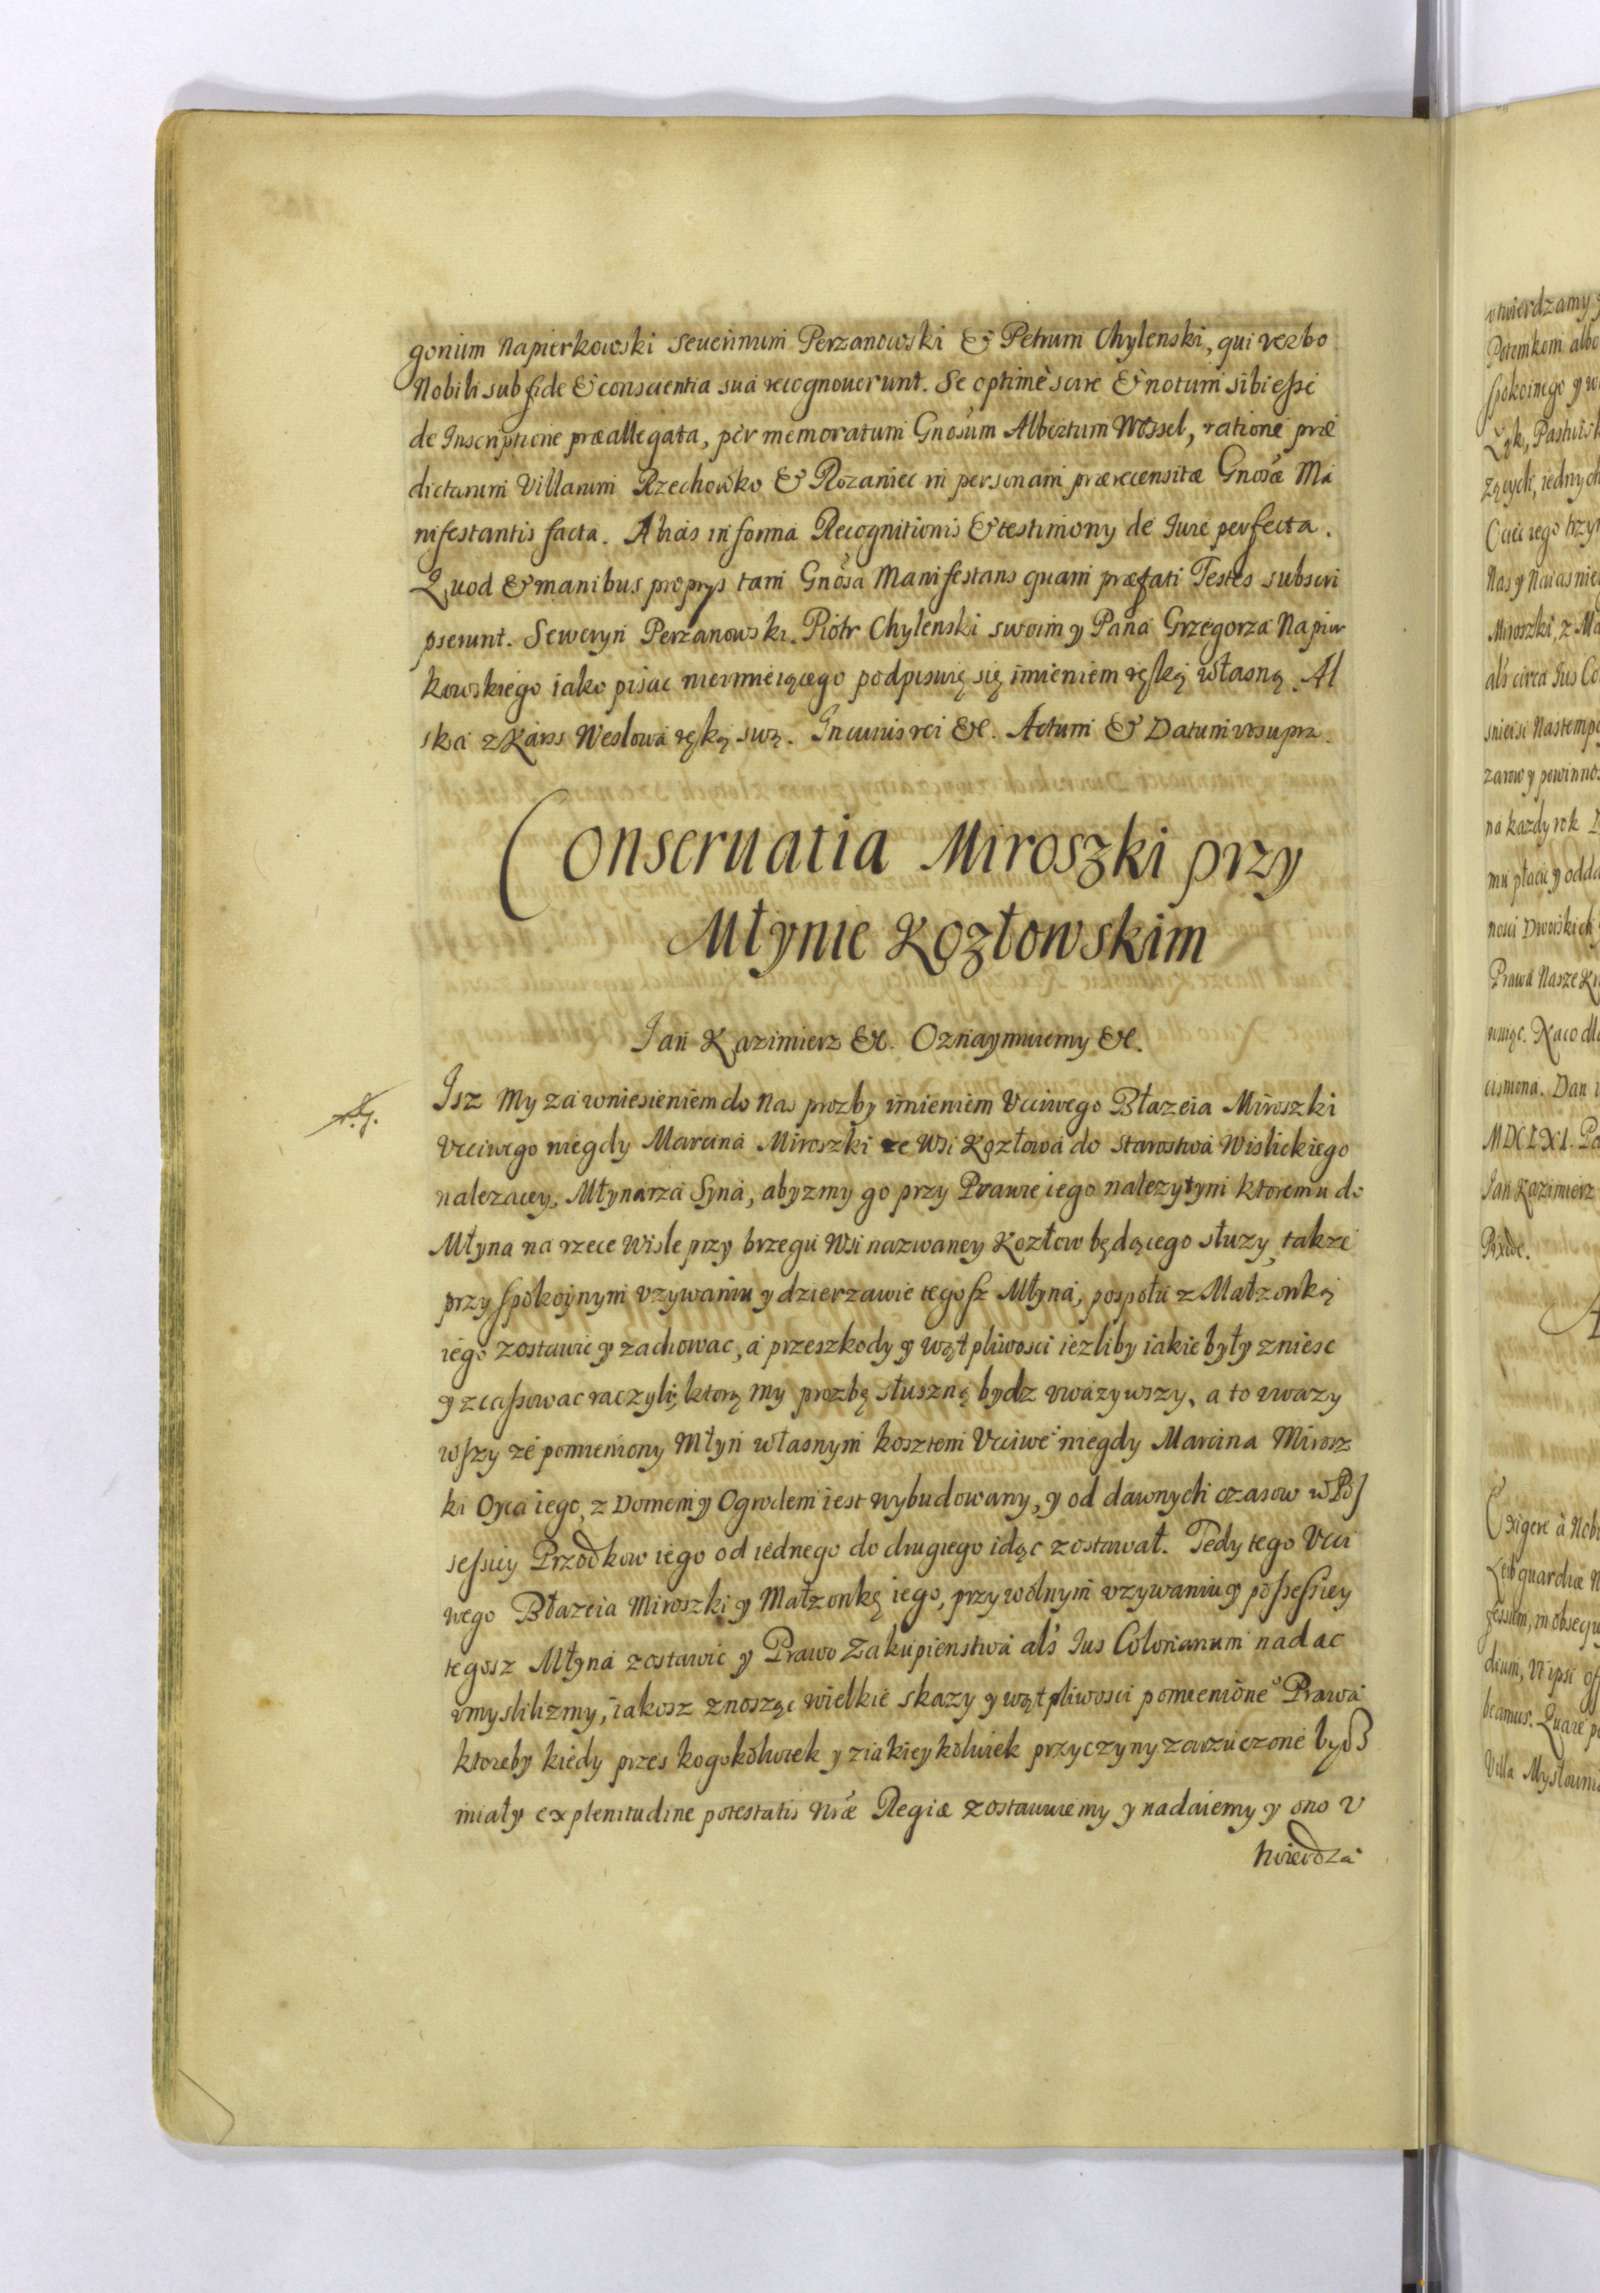 gorium Napierkowski Seuerinum Perzanowski & Petrum Chylenski, qui verbo
Nobili sub fide & conscientia sua recognouerunt. Se optime scire & notum sibi esse
de Inscriptione præallegata, per memoratum Gnosum Albertum Wessel, ratione præ
dictarum Villarum Rzechowko & Rozaniec in personam prærecensitæ Gnosæ Ma
nifestantis facta. Ahas in forma Recognitionis & testimony de Iure perfecta.
Quod & manibus proprys tam Gnosa Manifestans quam præfati Testes subscri
pserunt. Seweryn Perzanowski. Piotr Chylenski swoim y Pana Grzegorza Napier
kowskiego iako pisac nieumieiącego podpisuię się imieniem ręką własną. Al
ska z Karss Weslowa ręką swą. In cuius rei &c. Actum & Datum vt supra.
Conseruatia Miroszki przy
Młynie Kozłowskim
Jan Kazimierz &c. Oznaymuiemy &c.
Isz My za wniesieniem do Nas prozby imieniem Vcciwego Błazeia Miroszki
Vcciwego niegdy Marcina Miroszki ze Wsi Kozłowa do Starostwa Wislickiego
nalezacey, Młynarza Syna, abyzmy go przy Prawie iego nalezytym ktoremu do
Młyna na rzece Wisle przy brzegu Wsi nazwaney Kozłow będącego słuzy, takze
przy spokoynym vzywaniu y dzierzawie tegosz Młyna, pospołu z Małzonką
iego zostawic y zachowac, a przeszkody y wątpliwosci iezliby iakie były zniesc
y zcassowac raczyli, ktorą my prozbę słuszną bydz vwazywszy, a to vwazy
wszy ze pomieniony Młyn własnym kosztem Vcciwe° niegdy Marcina Mirosz
ki Oyca iego, z Domem y Ogrodem iest wybudowany, y od dawnych czasow w Pos
sessiey Przodkow iego od iednego do drugiego idąc zostawał. Tedy tego Vcci
wego Błazeia Miroszki y Małzonkę iego, przy wolnym vzywaniu y possessiey
tegosz Młyna zostawic y Prawo Zakupienstwa als Ius Colonianum nadac
vmyslilizmy, iakosz znosząc wielkie skazy y wątpliwosci pomienione° Prawa
ktoreby kiedy przes kogokolwiek y z iakieykolwiek przyczyny zarzuczone bydz
miały ex plenitudine potestatis Nræ Regiæ zostawuiemy y nadaiemy y ono v
twierdza
vtwierdzamy
Potomkom albo
spokoinego y w
na kazdy rok
Jan Kazimierz